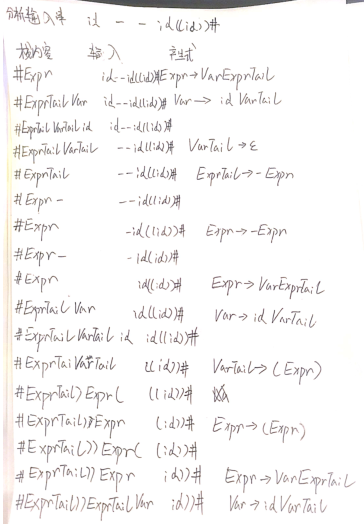 分析输入串 id - - id((id))#
栈内容 输入 产生式
#Expr id--id((id))# Expr→VarExprTail
#ExprTail Var id--id((id))# Var→ id VarTail
#ExprTail VarTail id id--id((id))#
#ExprTail VarTail --id((id))# VarTail→ε
#ExprTail --id((id))# ExprTail→-Expr
#Expr- --id((id))#
#Expr -id((id))# Expr→-Expr
#Expr- -id((id))#
#Expr id((id))# Expr→VarExprTail
#ExprTail Var id((id))# Var→id VarTail
#ExprTail VarTail id id((id))#
#ExprTail VarTail ((id))# VarTail→(Expr)
#ExprTail)Expr( ((id))#
#ExprTail)Expr (id))# Expr→(Expr)
#ExprTail))Expr( (id))#
#ExprTail))Expr id))# Expr→VarExprTail
#ExprTail))ExprTail Var id))# Var→idVarTail